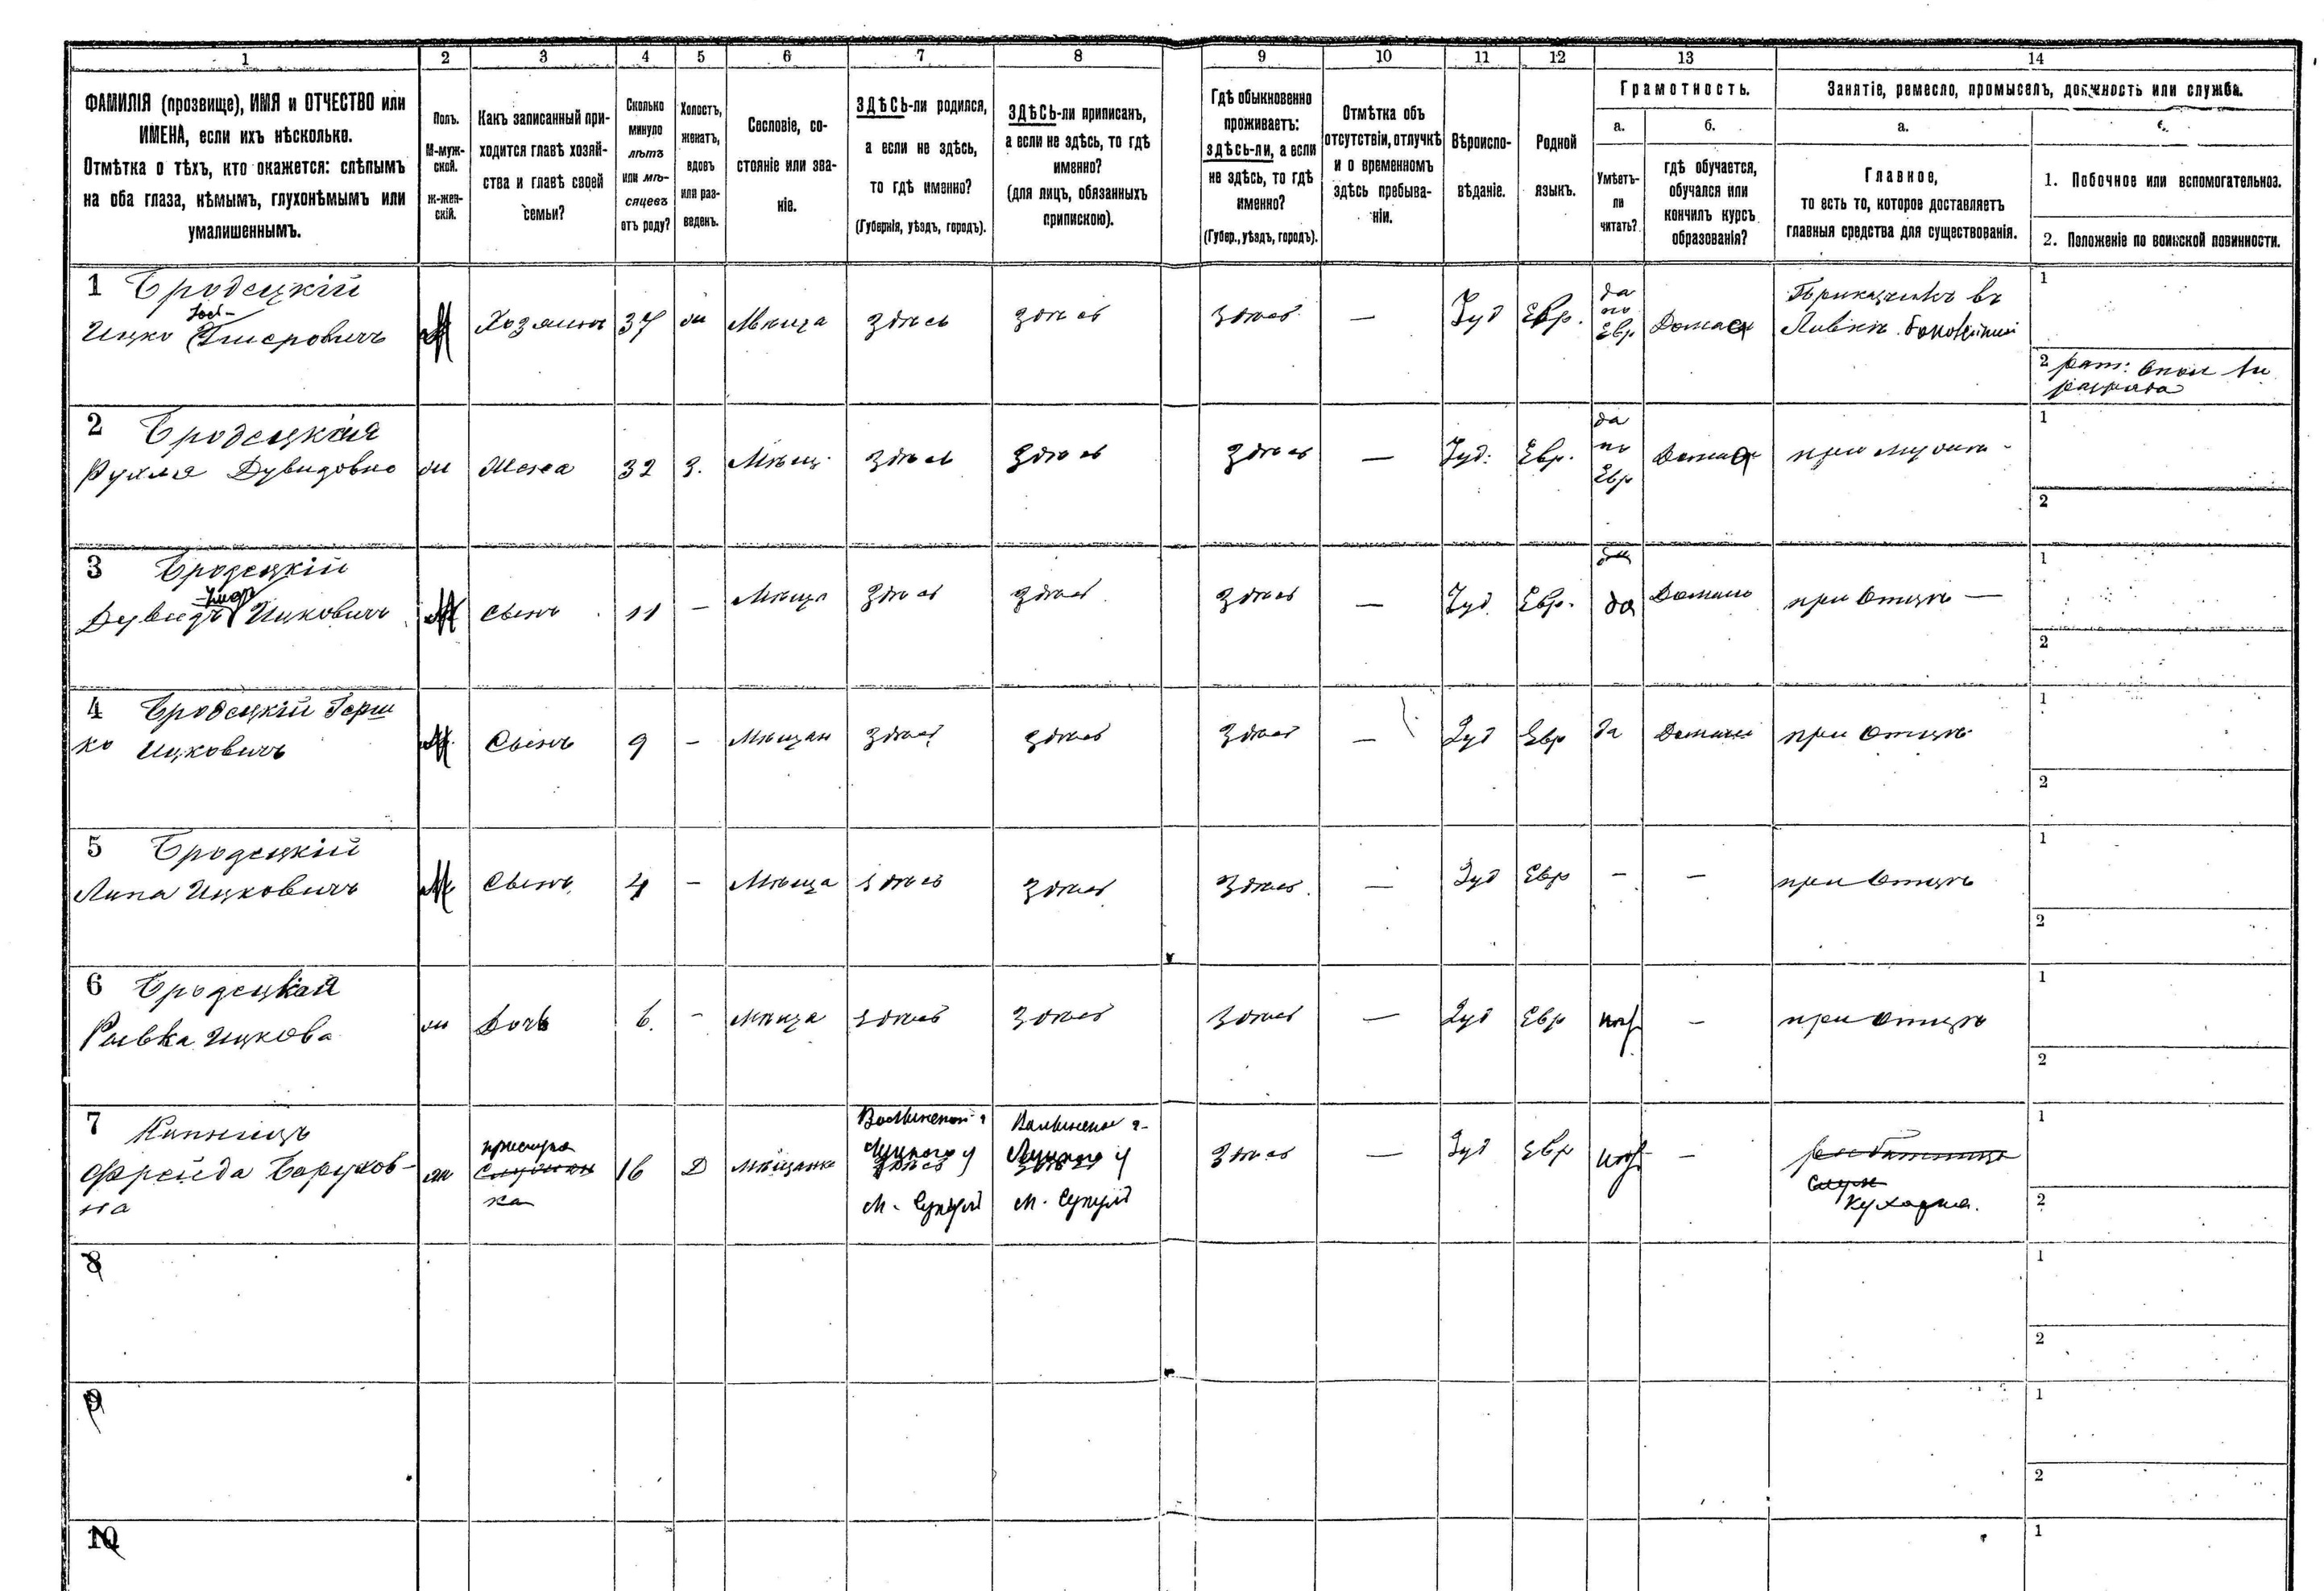 1 2 3 4 5 6 7 8 9 10 11 12 13 14
ФАМИЛІЯ (прозвище), ИМЯ и ОТЧЕСТВО или
ИМЕНА, если ихъ нѣсколько.
Отмѣтка о тѣхъ, кто окажется: слѣпымъ
на оба глаза, нѣмымъ, глухонѣмымъ или
умалишеннымъ.
Полъ.
М-муж-
ской.
Ж-жен-
скій.
Какъ записанный при-
ходится главѣ хозяй-
ства и главѣ своей
семьи?
Сколько
минуло
лѣтъ
или мѣ-
сяцевъ
отъ роду?
Холостъ,
женатъ,
вдовъ
или раз-
веденъ.
Сословіе, со-
стояніе или зва-
ніе.
ЗДѢСЬ-ли родился,
а если не здѣсь,
то гдѣ именно?
(Губернія, уѣздъ, городъ).
ЗДѢСЬ-ли приписанъ,
а если не здѣсь, то гдѣ
именно?
(для лицъ, обязанныхъ
припискою).
Гдѣ обыкновенно
проживаетъ:
здѣсь-ли, а если
не здѣсь, то гдѣ
именно?
(Губер., уѣздъ, городъ).
Отмѣтка объ
отсутствіи, отлучкѣ
и о временномъ
здѣсь пребыва-
ніи.
Вѣроиспо-
вѣданіе.
Родной
языкъ.
Грамотность.
а.
Умѣетъ-
ли
читать?
б.
гдѣ обучается,
обучался или
кончилъ курсъ
образованія?
Занятіе, ремесло, промыселъ, должность или служба.
а.
Главное,
то есть то, которое доставляетъ
главныя средства для существованія.
1. Побочное или вспомогательное.
2. Положеніе по воинской повинности.
1 Бродецкій
Ицко
Хозяинъ 37 Мѣща здѣсь здѣсь здѣсь — Іуд Евр.
да
по
Евр
Дома
Приказчикъ въ
1
2
2 Бродецкая
Рухля Дувидовна
Жена 32 З. Мѣщ. здѣсь здѣсь здѣсь — Іуд. Евр.
да
по
Евр
Дома при мужѣ
1
2
3 Бродецкій
Дувидъ Ицковичъ
М сынъ 11 — Мѣща здѣсь здѣсь здѣсь — Іуд. Евр. да Дома при отцѣ —
1
2
4 Бродецкій Герш
ко Ицковичъ
М. Сынъ 9 — Мѣщан здѣсь здѣсь здѣсь — Іуд Евр да Дома при отцѣ
1
2
5 Бродецкій
Липа Ицковичъ
М. Сынъ 4 — Мѣща здѣсь здѣсь здѣсь — Іуд Евр — — при отцѣ
1
2
6 Бродецкая
Ривка Ицкова
ж Дочь 6. — Мѣща здѣсь здѣсь здѣсь — Іуд Евр — при отцѣ
1
2
7
Фрейда Барухов-
на
ж
прислуга
16 Д Мѣщанка
Волынской г
Луцкого у
здѣсь
М.
Волынской г-
Луцкого у
здѣсь
М.
здѣсь — Іуд Евр —
Кухарка.
1
2
8
1
2
9
1
2
10
1